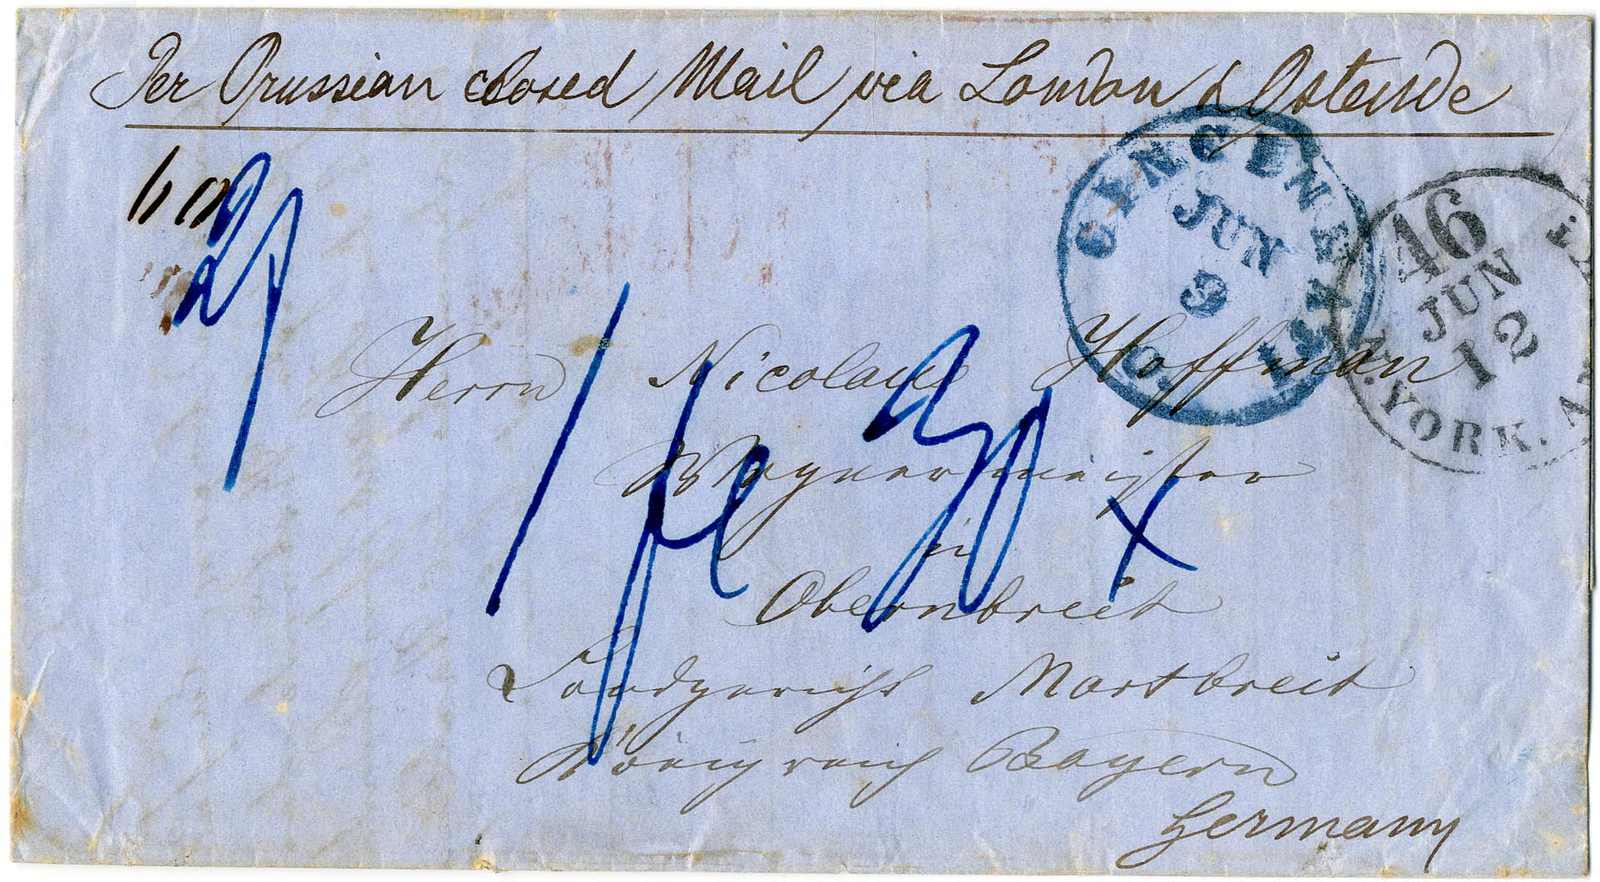 Per Prussian closed Mail via London & Ostende
CINCINNATI O.
JUN
9
46
JUN
12
N. YORK. A
Herrn Nicolaus Hoffman
Wagnermeister
in
Obernbreit
Landgericht Martbreit
Königreich Bayern
Germany